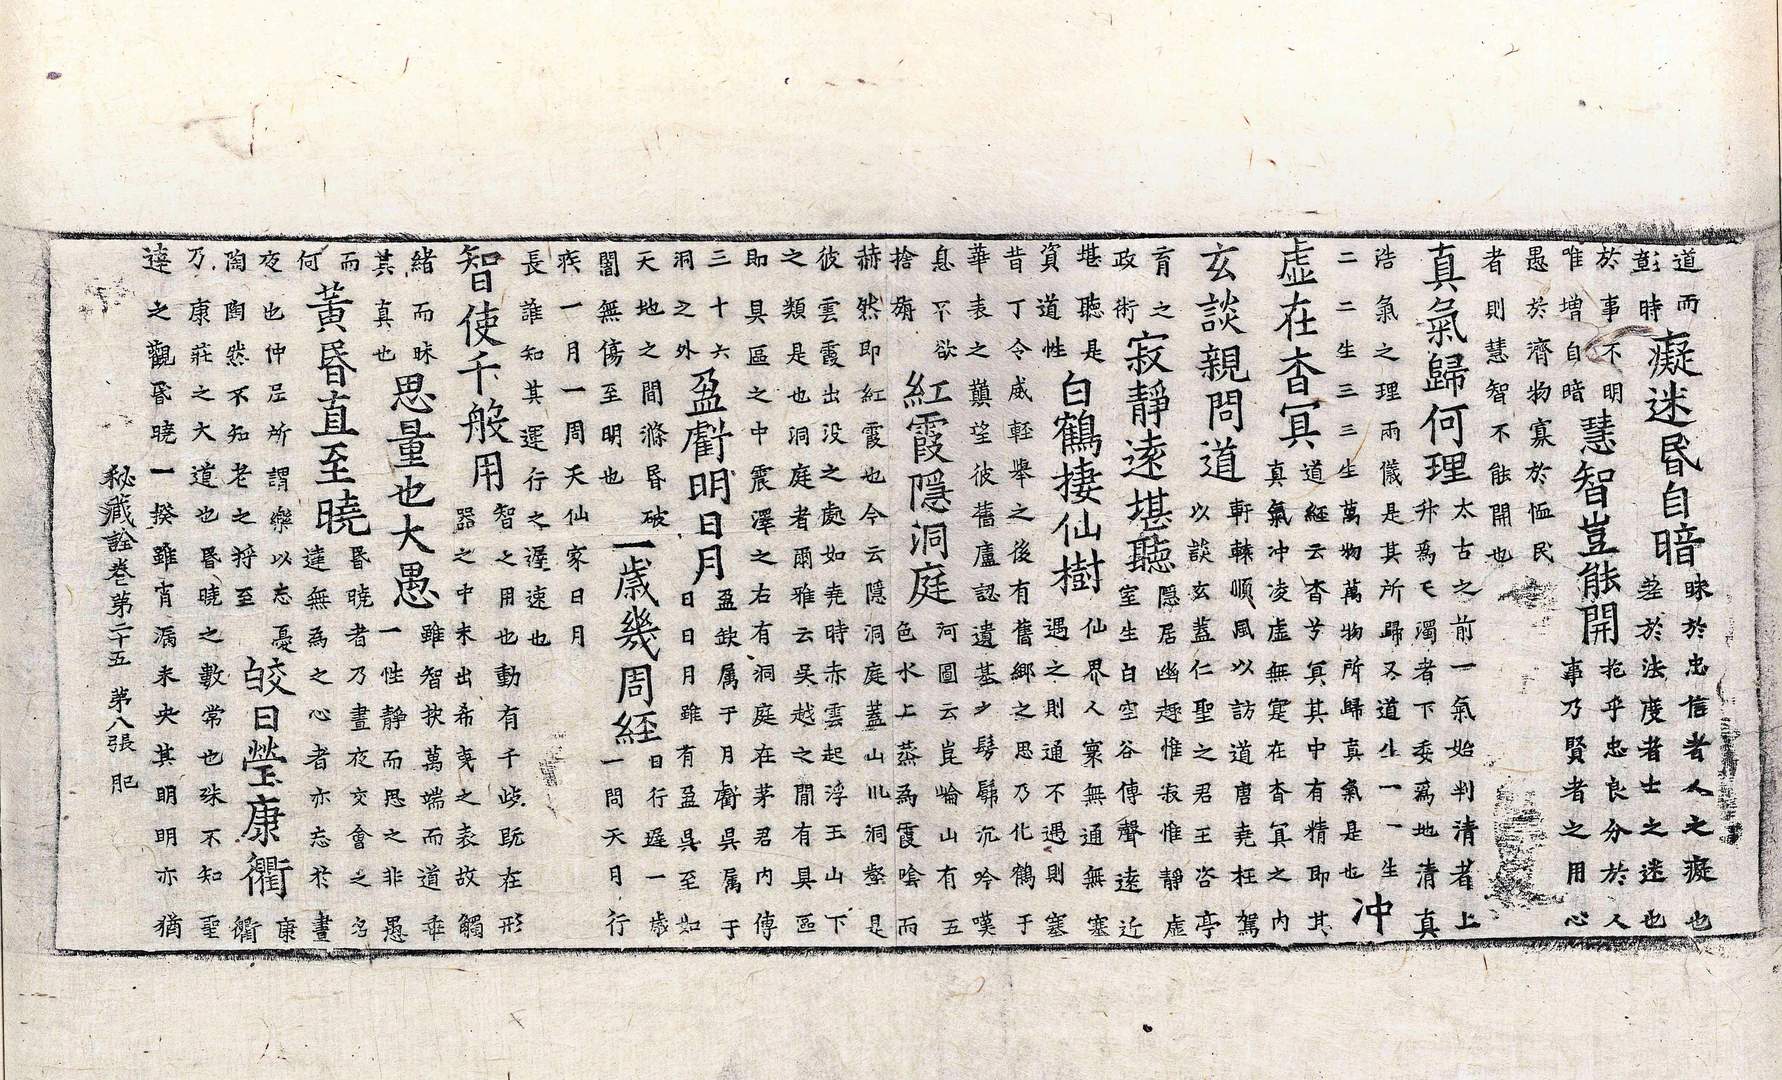 道而
彭時
癡迷昏自暗
昧於忠信者人之癡也
荖於法度者士之迷也
於事不明
唯增自暗
慧智豈能開
抱乎忠良分於人
事乃賢者之用心
愚於濟物寡於恤民
者則慧智不能開也
真氣歸何理
太古之前一氣始判清者上
升爲乇濁者下委爲地清真
浩氣之理兩儀是其所歸又道生一一生
二二生三三生萬物萬物所歸真氣是也
冲
虛在杳冥
道經云杳兮冥其中有精即其
真氣冲凌虛無寔在杳冥之内
玄談親問道
軒棘順風以訪道唐堯枉駕
以談玄蓋仁聖之君王咨亭
育之
政術
寂靜遠堪聽
隱居幽趣惟寂惟靜虛
室生白空谷傳聲遠近
堪聽是
資道性
白鶴捿仙樹
仙界人寰無通無塞
遇之則通不遇則塞
昔丁令威輕舉之後有舊鄉之思乃化鶴于
華表之巔望彼舊廬認遺基少髣髴沉吟嘆
息不欲
捨旃
紅霞隱洞庭
河圖云崑崙山有五
色水上蒸爲霞唅而
赫然即紅霞也今云隱洞庭蓋山洞壑是
彼雲霞出没之處如堯時赤雲起浮玉山下
之類是也洞庭者爾雅云吳越之間有具區
即具區之中震澤之右有洞庭在茅君内傳
三十六
洞之外
盈虧明日月
盈缺属于月虧昃属于
日日月雖有盈昃至如
天地之間滌昏破
闇無傷至明也
一歳幾周經
日行遲一歳
一問天日行
疾一月一周天仙家日月
長誰知其運行之遲速也
智使千般用
智之用也動有千岐既在形
器之中未出希夷之表故觸
緒而昧
其真也
思量也大愚
雖智抉萬端而道乖
一性靜而思之非愚
而
何
黃昏直至曉
昏曉者乃晝夜交會之名
達無爲之心者亦忘於晝
夜也仲尼所謂樂以忘憂
陶陶然不知老之將至
皎日瑩康衢
康
衢
乃康莊之大道也昏曉之數常也殊不知聖
達之觀昏曉一揆雖宵漏未央其明明亦猶
秘藏詮卷第二十五 第八張 肥